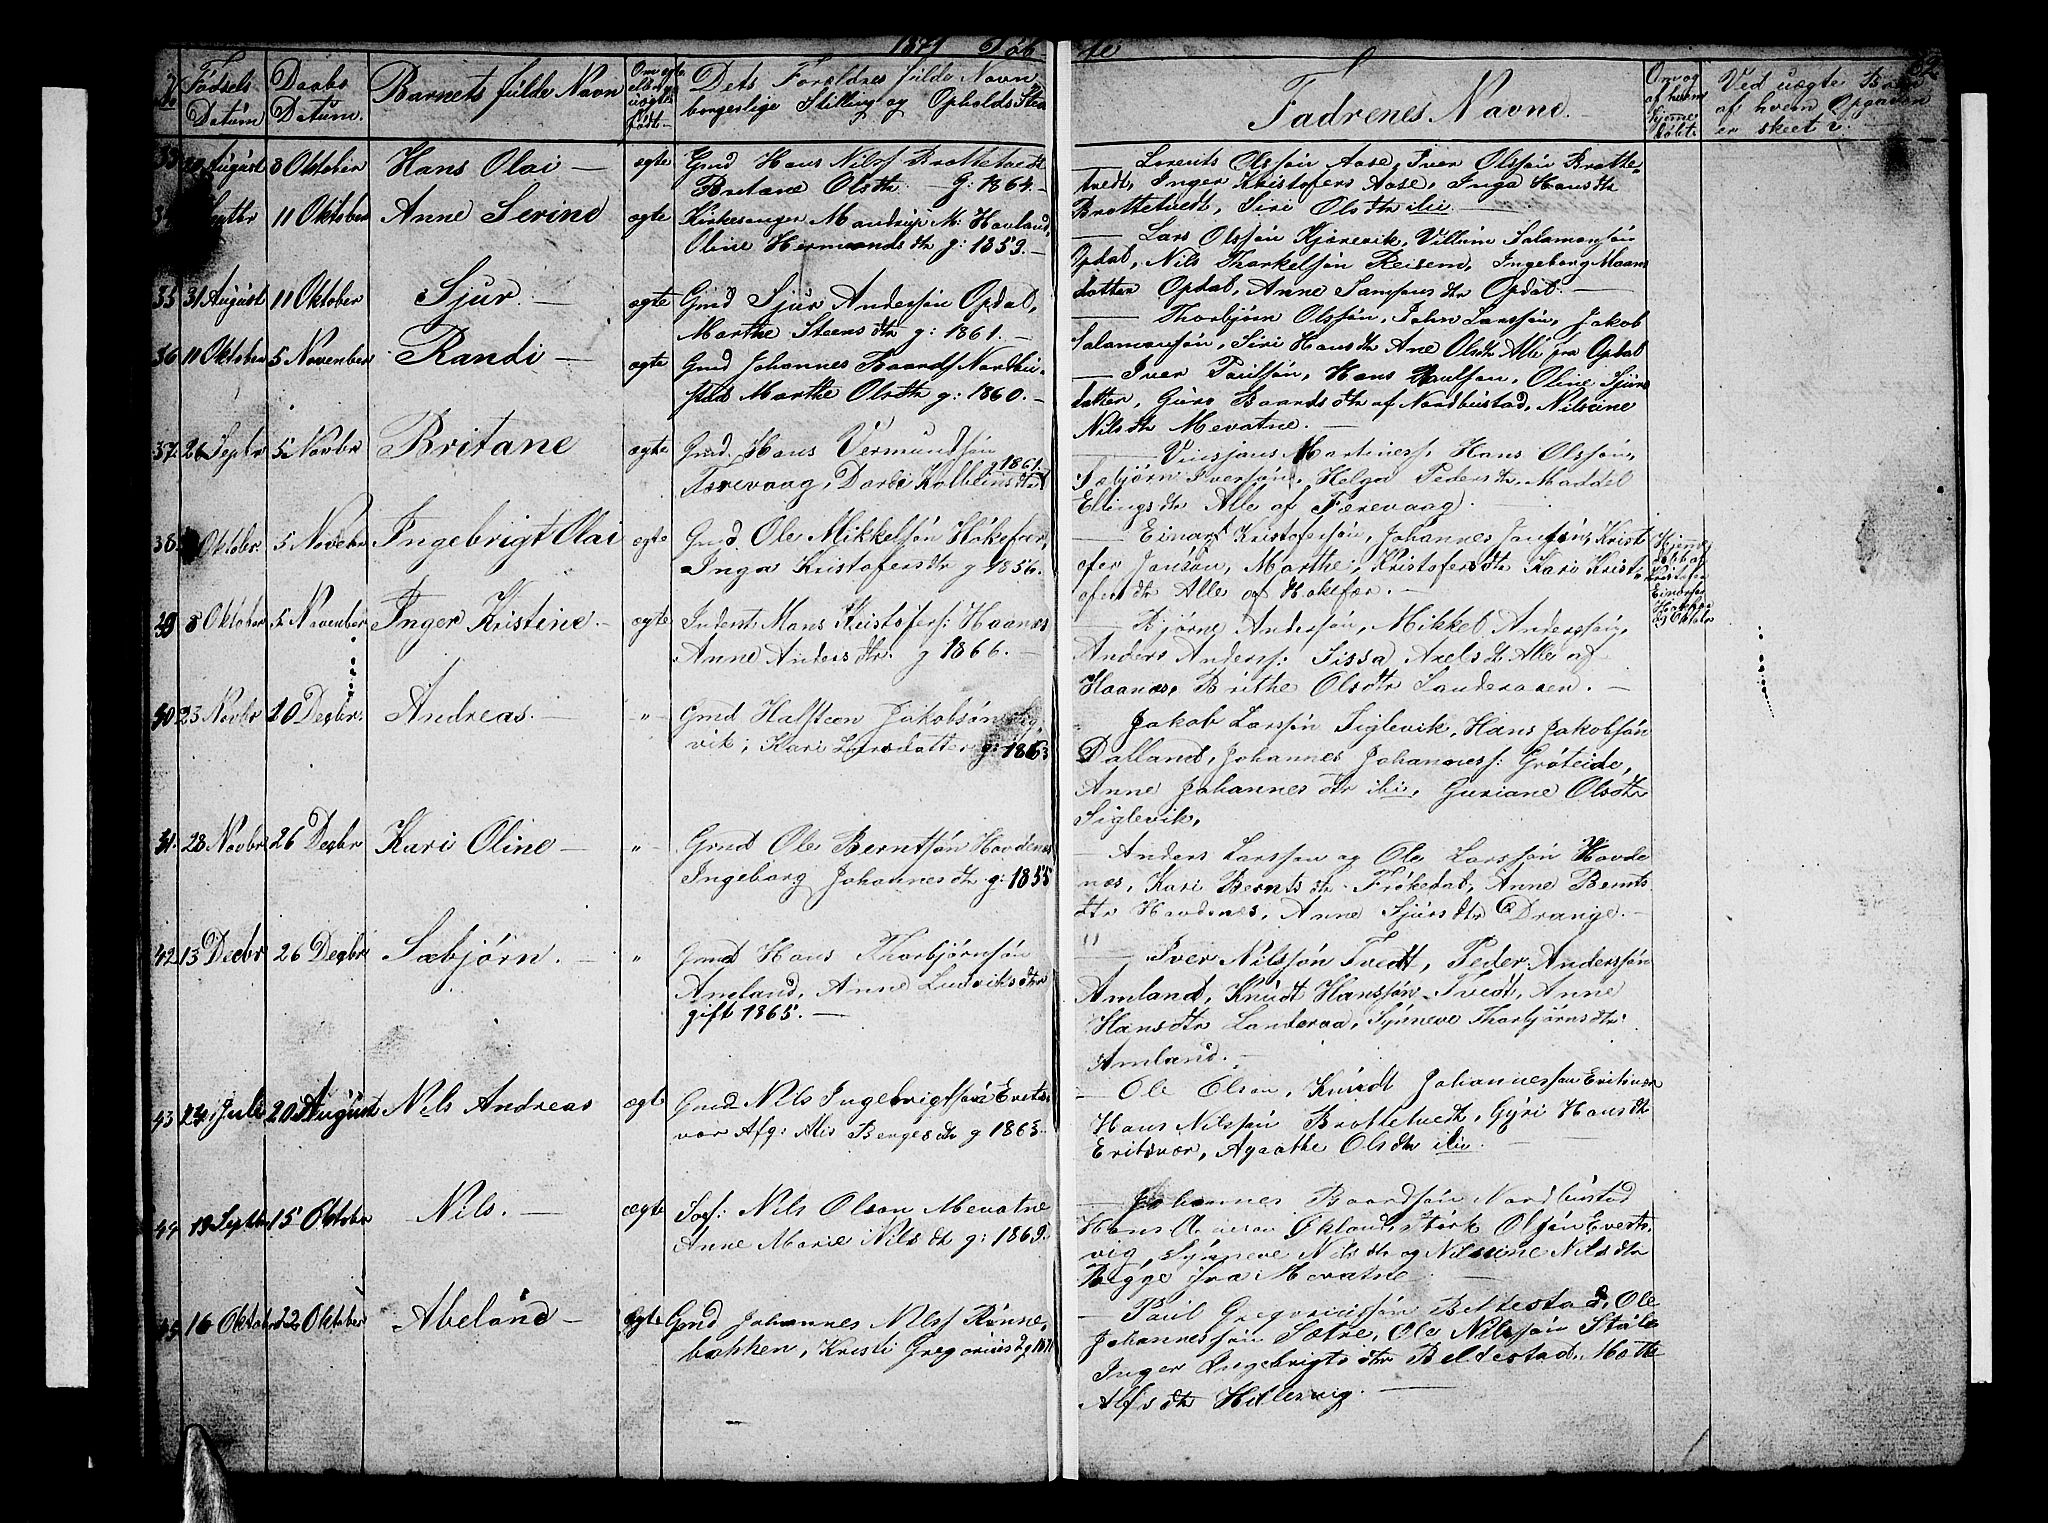 1871 Döb te
52
Fødsels Datum
Daabs Datum.
Barnets fulde Navn
Om ægte eller uægte født
Dets Forældres fulde Navn
borgerlige Stilling og Opholds Sted
Fadrenes Navne.
Om og af hvem hjemme døbt.
Ved uægte Børn
af hvem Opgaven
er skeet?
August 8 Oktober Hans Olai – ægte Gmd Hans Nilss Brottetvedt
Britane Olsdtr. – g: 1864. –
Lorents Olssøn Aase, Iver Olssøn Brotte-
tvedt, Inger Kristofers Aase, Inga Hansdtr
Brottetvedt, Siri Olsdtr ibi –
Septbr 11 Oktober Anne Serine ægte Kirkesanger Mandrup M. Hovland,
Oline Hermunds dtr g: 1859. –
Lars Olssøn Kjærevik, Villum Salamonsøn
Opdal, Nils Thorkelsøn Reisem, Ingeborg Maans
datter Opdal, Anne Samsons dtr Opdal. –
35 31 August 11 Oktober Sjur. – ægte Gmd Sjur Anderssøn Opdal,
Marthe Steens dtr g: 1861. –
Thorbjørn Olssøn, John Larssøn, Jakob
Salamonsøn, Siri Hans dtr Ane Olsdtr Alle fra Opdal
36 11 Oktober 5 November Randi – ægte Gmd Johannes Baards Nordbu-
stad Marthe Olsdtr g: 1860. –
Iver Paulsøn, Hans Paulsøn, Oline Sjurs
datter, Guro Baards dtr af Nordbustad, Nilsine
Nils dtr Mevatne. –
37. 26 Septbr 5 Novbr Britane ægte Gmd. Hans Vermundsøn
Færevaag, Dordi Kolbeins dtr g 1861.
Vinsjans Martines, Hans Olssøn,
Sæbjørn Iversøn, Helga Peders dtr, Maddel
Ellings dtr Alle af Færevaag. –
38 Oktober 5 Novebr Ingebrigt Olai ægte Gmd. Ole Mikkelsøn Høkefær,
Inga Kristofersdtr g 1856. –
Einar Kristofersøn, Johannes Jansøn, Krist
ofer Jansøn, Marthe Kristofersdtr Kari Krist-
ofersdtr Alle af Hokefær. –
Hjemme
døbt af
Kristofer
Einarsen
Oktober
39 8 Oktober 5 November Inger Kristine. – ægte Inderst Mons Kristofers: Haanæs
Anne Anders dtr. g 1866. –
Bjørne Anderssøn, Mikkel Anderssøn,
Anders Anderss: Sissa Axels dtr Alle af
Haanæs, Brithe Olsdtr Landeraaen. –
40 23 Novbr 10 Decbr. Andreas. – " Gmd Halsteen Jakobsøn Sig
vik, Kari Larsdatter g: 1863
Jakob Larssøn Siglevik, Hans Jakobsøn
Dalland, Johannes Johanness: Grøteide,
Anne Johannes dtr ibi, Guriane Olsdtr
Siglevik,
41. 28 Novbr 26 Decbr Kari Oline – " Gmd Ole Berntsøn Hovdenæs
Ingeborg Johannesdtr g: 1855
Anders Larssøn og Ole Larssøn Hovde
næs, Kari Bernts dtr Frøkedal, Anne Bernts
dtr Hovdenæs, Anne Sjurs dtr Drange. –
42. 13 Decbr 26 Decbr Sæbjørn. – " Gmd Hans Thorbjørnsøn
Amland, Anne Ludviks dtr
gift 1865. –
Iver Nilssøn Tvedt, Peder Anderssøn
Amland, Knudt Hanssøn Tvedt, Anne
Hansdtr Landeraa, Synneve Thorbjørnsdtr
Amland. –
43 24 Juli 20 August Nils Andreas ægte Gmd Nils Ingebrigtsøn Erits-
vær Afg: Alis Berges dtr g 1863.
Ole Olsen, Knudt Johannessøn Eritsvær
Hans Nilssøn Brottetvedt, Gyri Hansdtr
Eritsvær, Agaathe Olsdtr ibi.
44 19 Septbr 15 Oktober Nils. – ægte Nils Olsen Mevatne
Anne Marie Nils dtr g: 1869.
Johannes Baardsøn Nordbustad
Hans Økland, Størk Olsøn Everts-
vig, Synneve Nilsdtr og Nilsine Nilsdtr
Begge fra Mevatne
45 16 Oktober 22 Oktober Abelone – ægte Gmd Johannes Nilss Rønne-
bakken, Kristi Gregorius d g 1871
Paul Gregoriussøn Beltestad, Ole
Johannessøn Sætre, Ole Nilssøn Støle
Inger Ingebrigts dtr Beltestad, Motte
Alfs dtr Hillervig. –